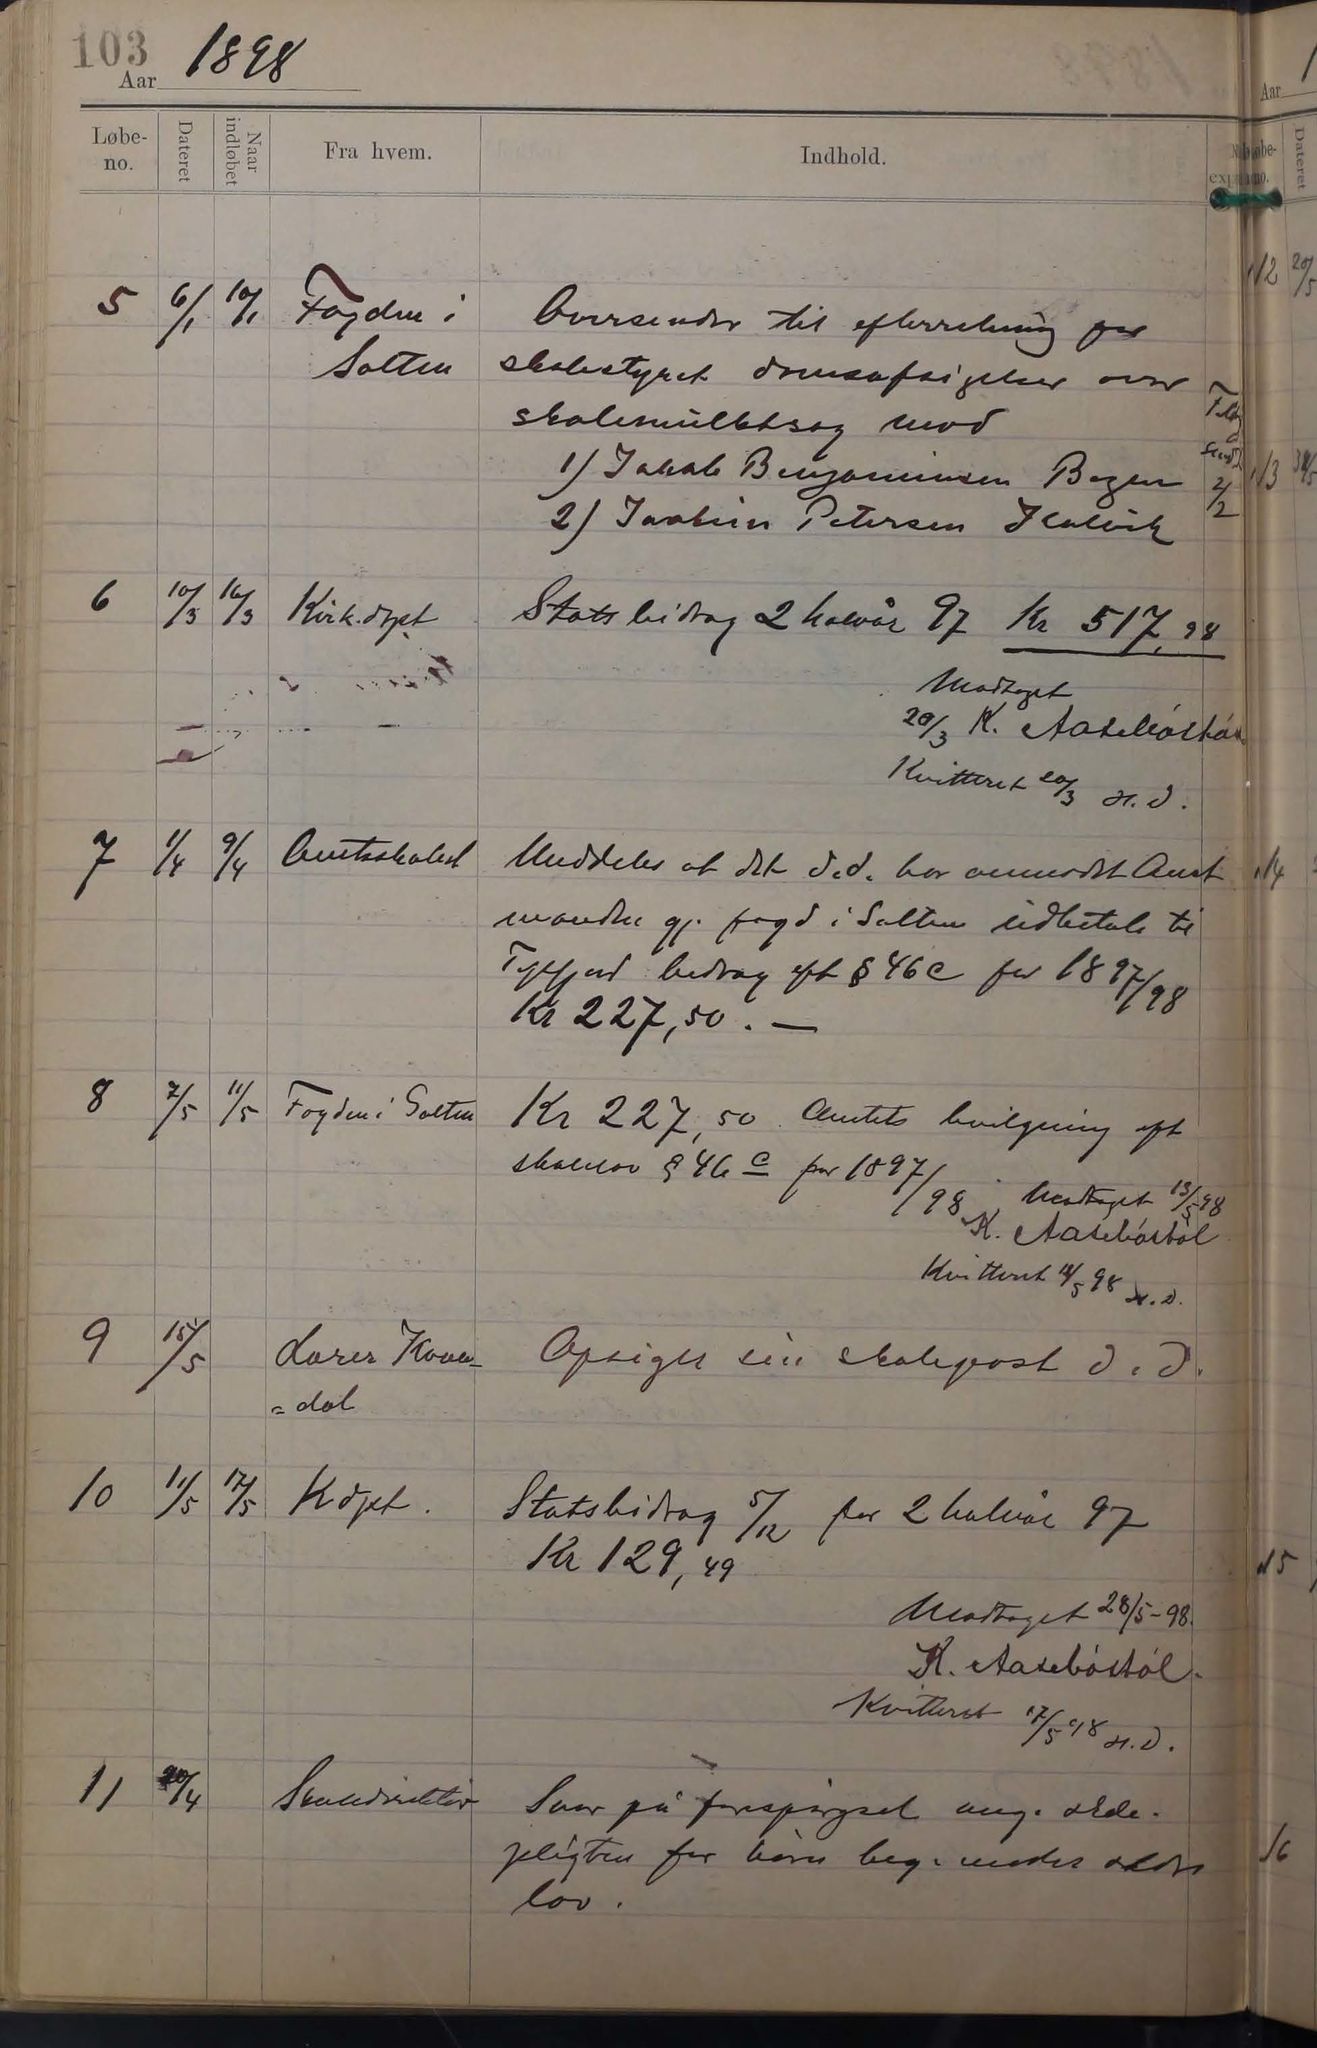 103
Aar 1898
Løbe-no. Dateret Naar indløbet Fra hvem. Indhold.
5 6/1 10/1 Fogden i Oversender til efterretning for
Salten skolestyret domsafsigelser over
skolemulktsag mod
1) Jakob Benjaminsen Bogen
2) Joakim Petersen
2/2
6 10/3 16/3 Kirk.dept Statsbidrag 2 halvår 97 Kr 517,98
Modtaget
20/3 K. Aasebøstøl
Kvitteret 20/3 H. D.
7 1/4 9/4 Amtsskolest Meddeler at dtk d.d. har anmodet Amt
manden gj. fogd i Salten udbetale til
bidrag eft § 46 c for 1897/98
Kr 227,50. —
8 7/5 11/5 Fogden i Salten Kr 227,50 Amtets bevilgning eft
skolelov § 46 c for 1897/98. Modtaget 13/5 98
K. Aasebøstøl
Kvitteret 12/5 98 H. D.
9 15/5 Lærer Kvæn-
= dal Opsiger sin skolepost d. d.
10 11/5 17/5 K dpt. Statsbidrag 5/12 for 2 halvår 97
Kr 129,49
Modtaget 28/5-98.
K. Aasebøstøl.
Kvitteret 17/5 98 H. D.
11 20/4 Skoledirektør Svar på forespørgsel ang.
pligten for børn beg. under ældre
lov.
Aar
Dateret
12 20/5
13
14
15
16